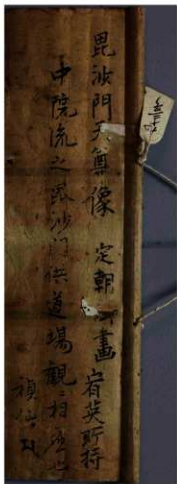 毘沙門天尊像 定朝 画 宥英所持
中院流之毘沙門供道場観ニ相応也